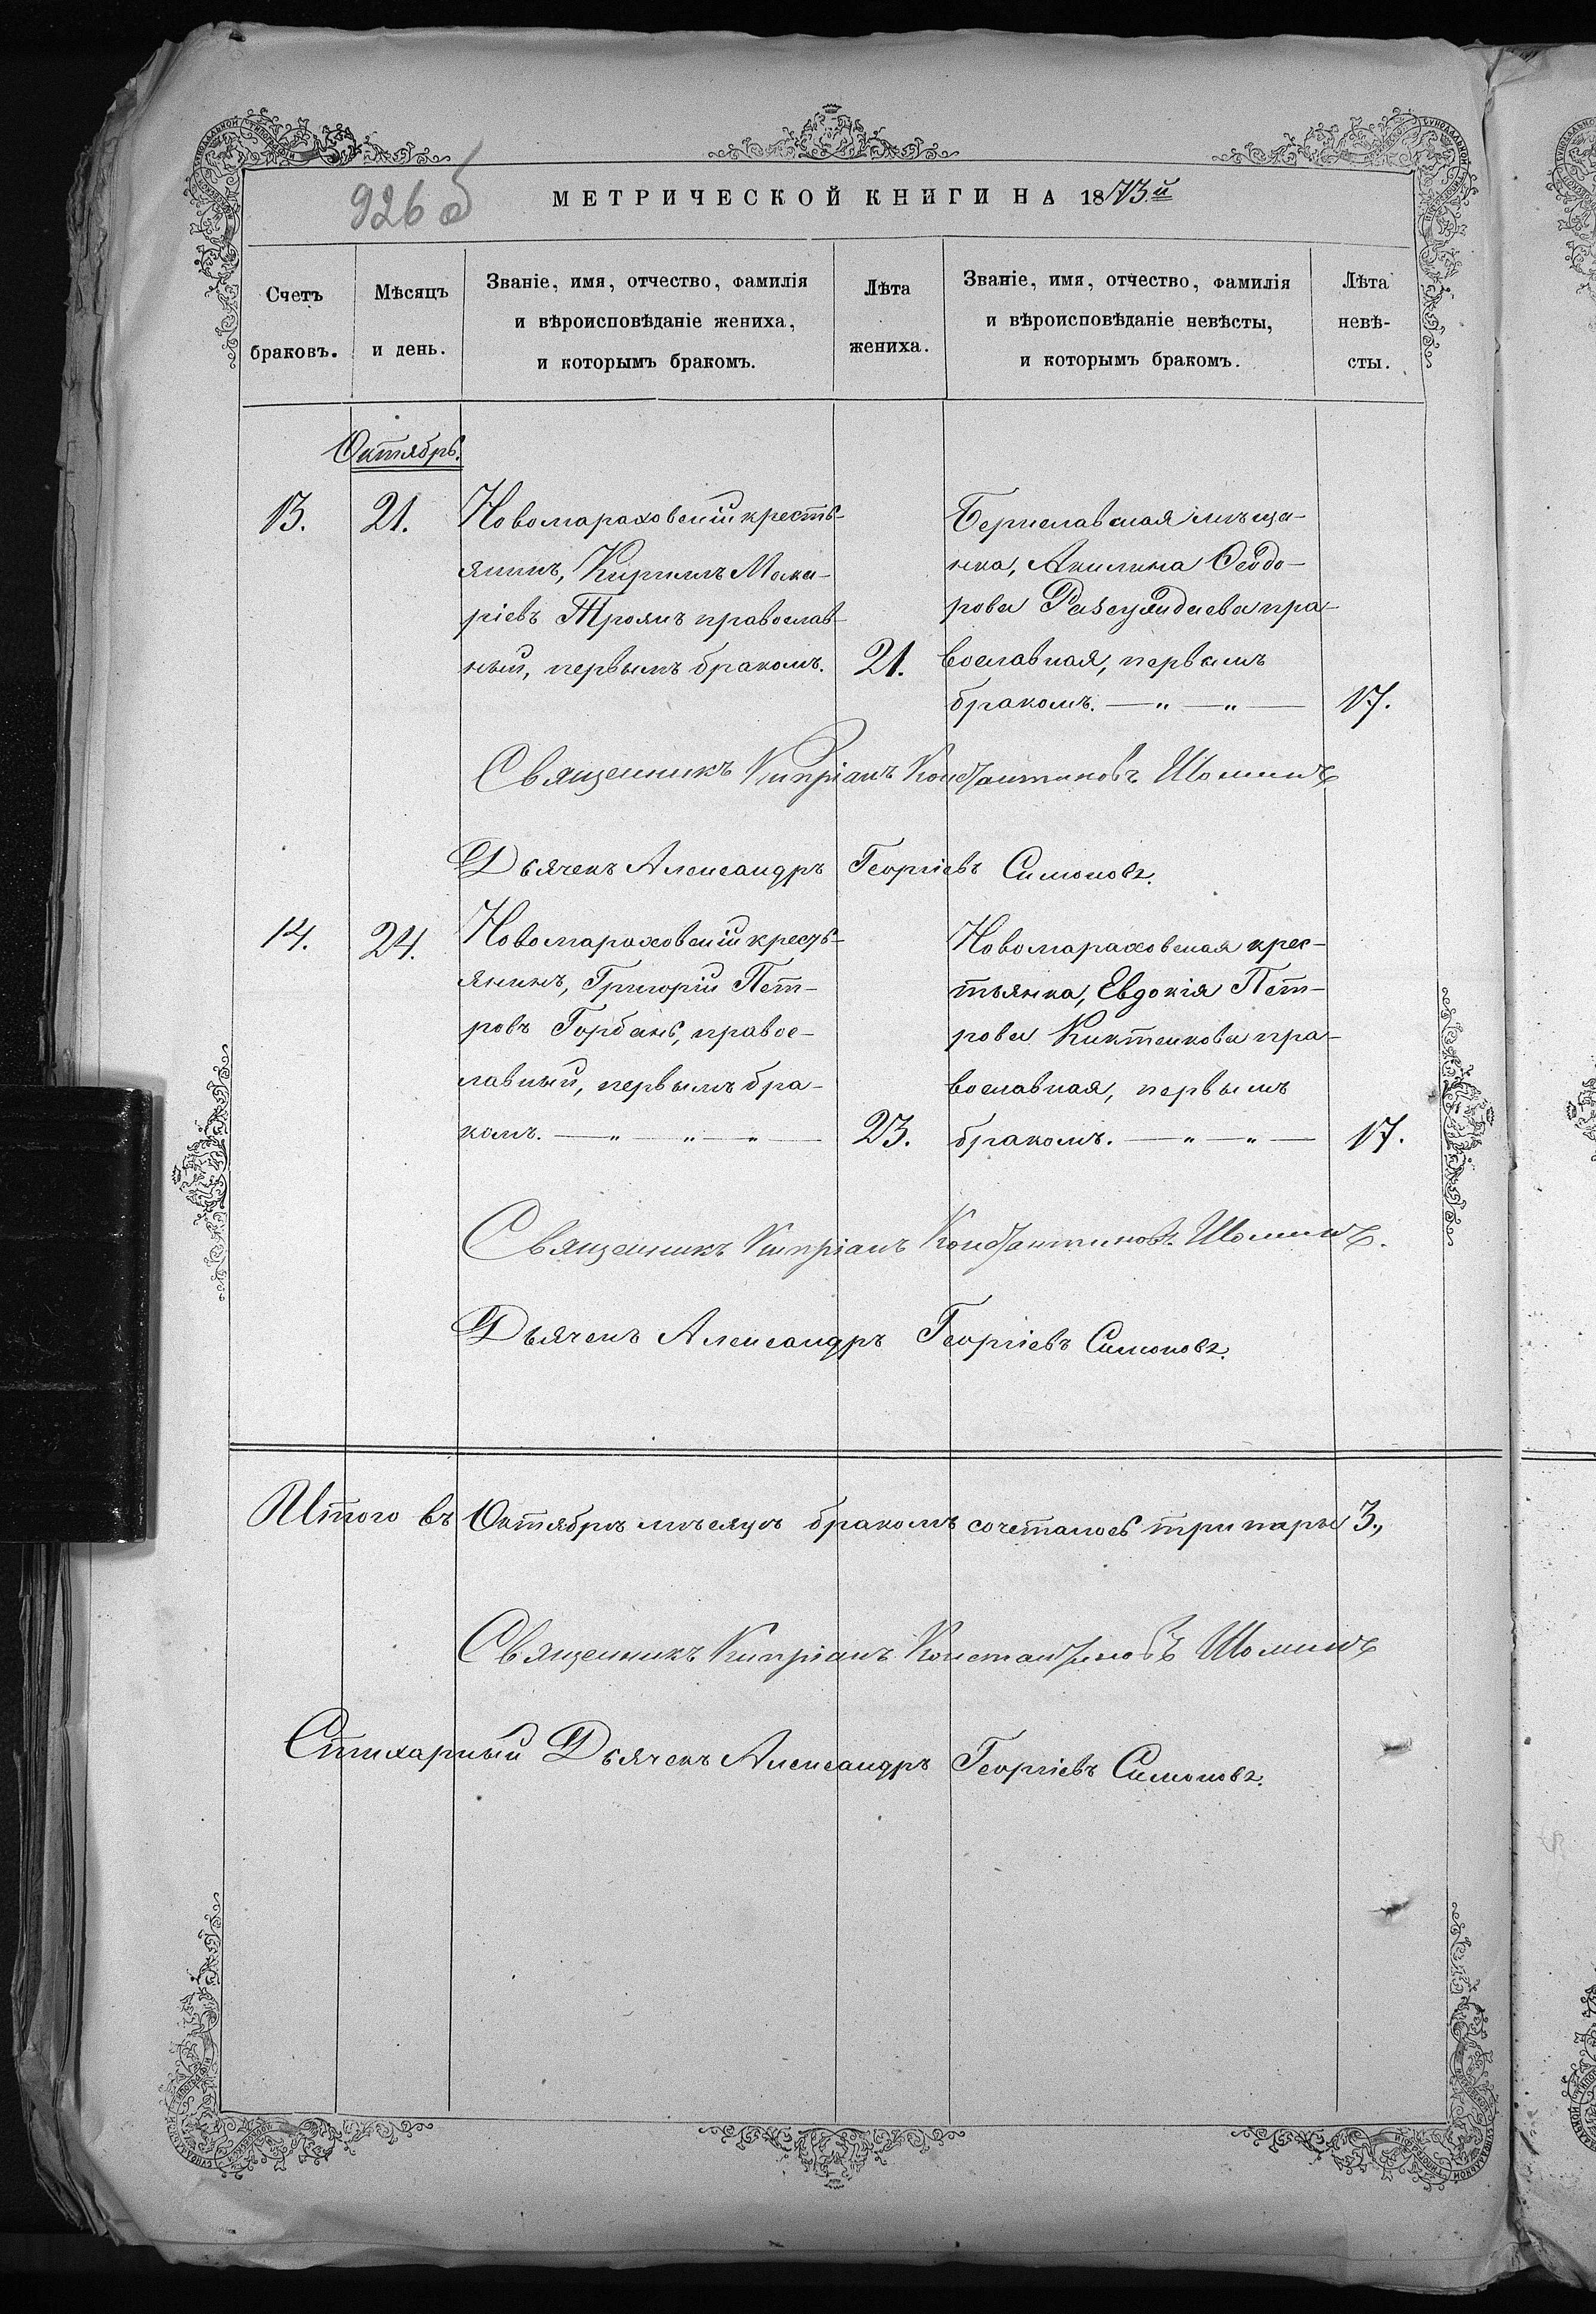 926 об
МЕТРИЧЕСКОЙ КНИГИ НА 1873й
Счетъ браковъ.
Мѣсяцъ и день.
Званіе, имя, отчество, фамилія
и вѣроисповѣданіе жениха,
и которымъ бракомъ.
Лѣта жениха.
Званіе, имя, отчество, фамилія
и вѣроисповѣданіе невѣсты,
и которымъ бракомъ.
Лѣта
невѣ-
сты.
Октябрь.
13.
21.
Новомараховскій кресть-
янинъ, Кириллъ Мака-
ріевъ Троянъ православ-
ный, первымъ бракомъ.
21.
Бериславская мѣща-
нка, Акилина Ѳеодо-
рова пра-
вославная, первымъ
бракомъ. — " — " —
17.
Священникъ Кипріанъ Константиновъ Шоминъ
Дьячекъ Александръ Георгіевъ Симоновъ.
14.
24.
Новомараховскій кресть-
янинъ, Григорій Пет-
ровъ Горбань, правос-
лавный, первымъ бра-
комъ. — " — " — " —
23.
Новомараховская крес-
тьянка, Евдокія Пет-
рова Киктенкова пра-
вославная, первымъ
бракомъ. — " — " —
17.
Священникъ Кипріанъ Константиновъ Шоминъ.
Дьячекъ Александръ Георгіевъ Симоновъ.
Итого въ Октябрѣ мѣсяцѣ бракомъ сочеталось три пары 3.,
Священникъ Кипріанъ Константиновъ Шоминъ
Стихарный Дьячекъ Александръ Георгіевъ Симоновъ.